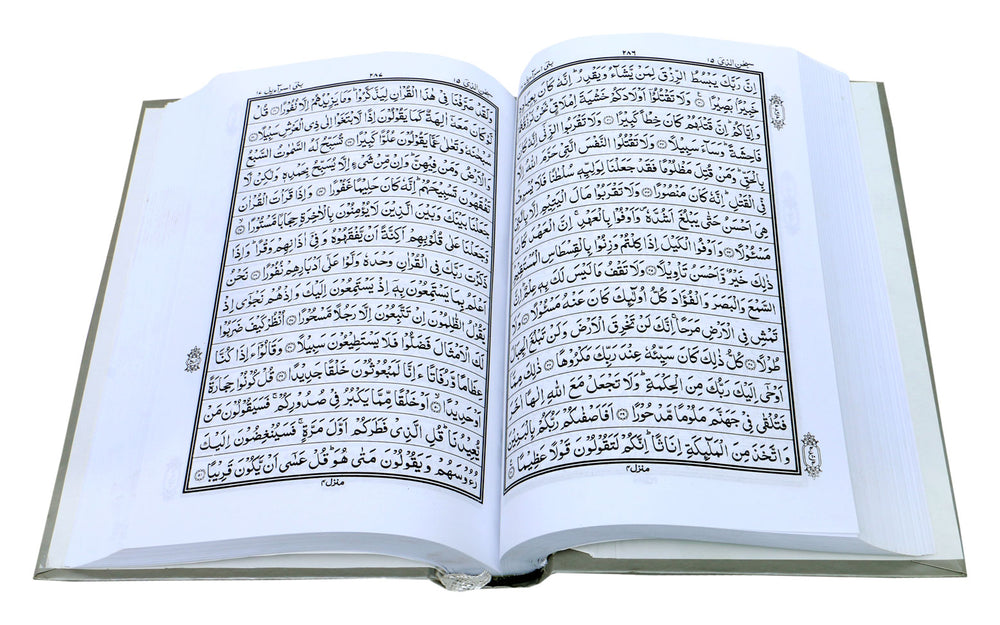 سبحن الذی ۱۵
۲۸۶
اِنَّ رَبَّكَ يَبْسُطُ الرِّزْقَ لِمَنْ يَّشَآءُ وَيَقْدِرُ ؕ اِنَّهٗ كَانَ
خَبِيْرًۢا بَصِيْرًا ۳۰ وَلَا تَقْتُلُوْۤا اَوْلَادَكُمْ خَشْيَةَ اِمْلَاقٍ ؕ نَحْنُ
وَاِيَّاكُمْ ؕ اِنَّ قَتْلَهُمْ كَانَ خِطْاً كَبِيْرًا ۳۱ وَلَا تَقْرَبُوا الزِّنٰۤى اِنَّهٗ
فَاحِشَةً ؕ وَسَآءَ سَبِيْلًا ۳۲ وَلَا تَقْتُلُوا النَّفْسَ الَّتِيْ حَرَّمَ
بِالْحَقِّ ؕ وَمَنْ قُتِلَ مَظْلُوْمًا فَقَدْ جَعَلْنَا لِوَلِيِّهٖ سُلْطٰنًا فَلَا
فِّي الْقَتْلِ ؕ اِنَّهٗ كَانَ مَنْصُوْرًا ۳۳ وَلَا تَقْرَبُوْا مَالَ الْيَتِيْمِ اِلَّا
هِيَ اَحْسَنُ حَتّٰى يَبْلُغَ اَشُدَّهٗ ۪ وَاَوْفُوْا بِالْعَهْدِ ۚ اِنَّ الْعَهْدَ كَانَ
مَسْـُٔوْلًا ۳۴ وَاَوْفُوا الْكَيْلَ اِذَا كِلْتُمْ وَزِنُوْا بِالْقِسْطَاسِ الْمُسْتَقِيْمِ
ذٰلِكَ خَيْرٌ وَّاَحْسَنُ تَاْوِيْلًا ۳۵ وَلَا تَقْفُ مَا لَيْسَ لَكَ بِهٖ عِلْمٌ ؕ اِنَّ
السَّمْعَ وَالْبَصَرَ وَالْفُؤَادَ كُلُّ اُولٰٓئِكَ كَانَ عَنْهُ مَسْـُٔوْلًا ۳۶ وَلَا
تَمْشِ فِي الْاَرْضِ مَرَحًا ۚ اِنَّكَ لَنْ تَخْرِقَ الْاَرْضَ وَلَنْ تَبْلُغَ الْجِبَالَ
طُوْلًا ۳۷ كُلُّ ذٰلِكَ كَانَ سَيِّئُهٗ عِنْدَ رَبِّكَ مَكْرُوْهًا ۳۸ ذٰلِكَ مِمَّاۤ
اَوْحٰۤى اِلَيْكَ رَبُّكَ مِنَ الْحِكْمَةِ ؕ وَلَا تَجْعَلْ مَعَ اللّٰهِ اِلٰهًا اٰخَرَ
فَتُلْقٰى فِيْ جَهَنَّمَ مَلُوْمًا مَّدْحُوْرًا ۳۹ اَفَاَصْفٰىكُمْ رَبُّكُمْ بِالْبَنِيْنَ
وَاتَّخَذَ مِنَ الْمَلٰٓئِكَةِ اِنَاثًا ؕ اِنَّكُمْ لَتَقُوْلُوْنَ قَوْلًا عَظِيْمًا ۴۰
منزل ۴
سبحن الذی ۱۵
۲۸۷
بنی اسرآءیل ۱۷
وَلَقَدْ صَرَّفْنَا فِيْ هٰذَا الْقُرْاٰنِ لِيَذَّكَّرُوْا ؕ وَمَا يَزِيْدُهُمْ اِلَّا نُفُوْرًا ۴۱ قُلْ
لَّوْ كَانَ مَعَهٗۤ اٰلِهَةٌ كَمَا يَقُوْلُوْنَ اِذًا لَّابْتَغَوْا اِلٰى ذِي الْعَرْشِ سَبِيْلًا ۴۲
سُبْحٰنَهٗ وَتَعٰلٰى عَمَّا يَقُوْلُوْنَ عُلُوًّا كَبِيْرًا ۴۳ تُسَبِّحُ لَهُ السَّمٰوٰتُ السَّبْعُ
وَالْاَرْضُ وَمَنْ فِيْهِنَّ ؕ وَاِنْ مِّنْ شَيْءٍ اِلَّا يُسَبِّحُ بِحَمْدِهٖ وَلٰكِنْ لَّا
تَفْقَهُوْنَ تَسْبِيْحَهُمْ ؕ اِنَّهٗ كَانَ حَلِيْمًا غَفُوْرًا ۴۴ وَاِذَا قَرَاْتَ الْقُرْاٰنَ
جَعَلْنَا بَيْنَكَ وَبَيْنَ الَّذِيْنَ لَا يُؤْمِنُوْنَ بِالْاٰخِرَةِ حِجَابًا مَّسْتُوْرًا ۴۵
وَّجَعَلْنَا عَلٰى قُلُوْبِهِمْ اَكِنَّةً اَنْ يَّفْقَهُوْهُ وَفِيْۤ اٰذَانِهِمْ وَقْرًا ؕ وَاِذَا
ذَكَرْتَ رَبَّكَ فِي الْقُرْاٰنِ وَحْدَهٗ وَلَّوْا عَلٰۤى اَدْبَارِهِمْ نُفُوْرًا ۴۶ نَحْنُ
اَعْلَمُ بِمَا يَسْتَمِعُوْنَ بِهٖۤ اِذْ يَسْتَمِعُوْنَ اِلَيْكَ وَاِذْ هُمْ نَجْوٰۤى اِذْ
يَقُوْلُ الظّٰلِمُوْنَ اِنْ تَتَّبِعُوْنَ اِلَّا رَجُلًا مَّسْحُوْرًا ۴۷ اُنْظُرْ كَيْفَ ضَرَبُوْا
لَكَ الْاَمْثَالَ فَضَلُّوْا فَلَا يَسْتَطِيْعُوْنَ سَبِيْلًا ۴۸ وَقَالُوْۤا ءَاِذَا كُنَّا
عِظَامًا وَّرُفَاتًا ءَاِنَّا لَمَبْعُوْثُوْنَ خَلْقًا جَدِيْدًا ۴۹ قُلْ كُوْنُوْا حِجَارَةً
اَوْ حَدِيْدًا ۵۰ اَوْ خَلْقًا مِّمَّا يَكْبُرُ فِيْ صُدُوْرِكُمْ ۚ فَسَيَقُوْلُوْنَ مَنْ
يُّعِيْدُنَا ؕ قُلِ الَّذِيْ فَطَرَكُمْ اَوَّلَ مَرَّةٍ ۚ فَسَيُنْغِضُوْنَ اِلَيْكَ
رُءُوْسَهُمْ وَيَقُوْلُوْنَ مَتٰى هُوَ ؕ قُلْ عَسٰۤى اَنْ يَّكُوْنَ قَرِيْبًا ۵۱
منزل ۴